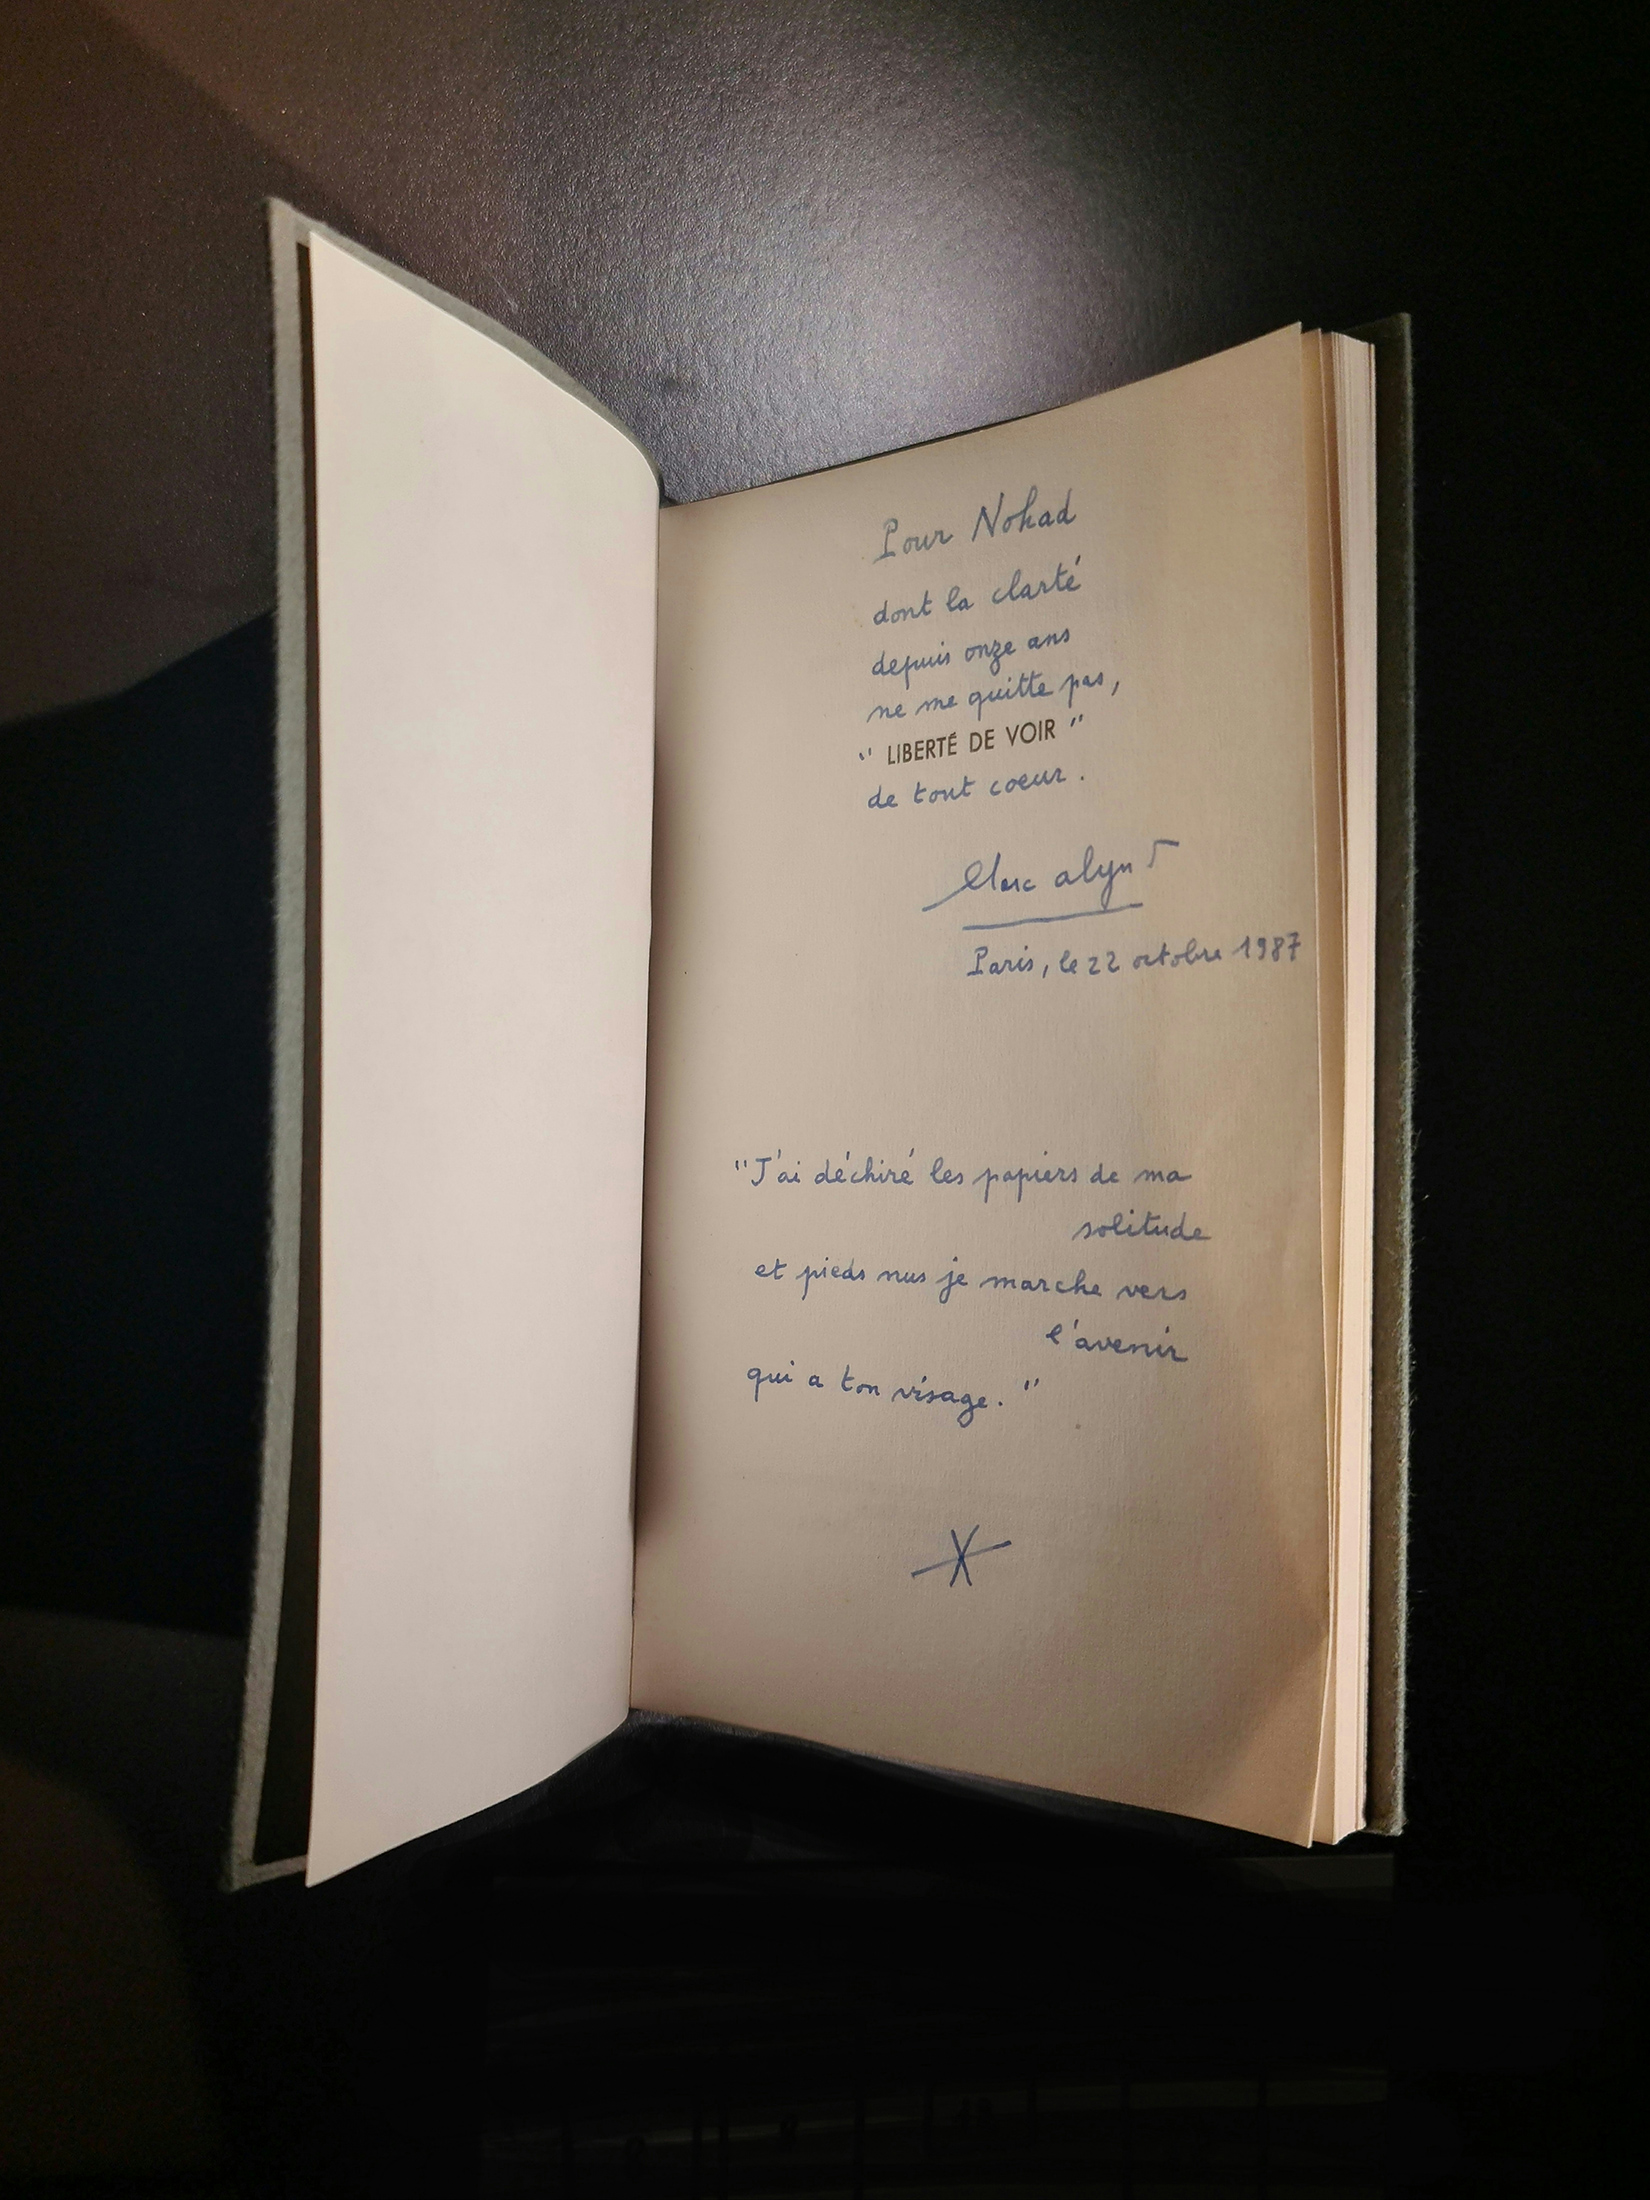 Pour Nohad
dont la clarté
depuis onze ans
ne me quitte pas,
" LIBERTÉ DE VOIR "
de tout coeur.
Marc alyn
Paris, le 22 octobre 1987
"J'ai déchiré les papiers de ma
solitude
et pieds nus je marche vers
l'avenir
qui a ton visage."